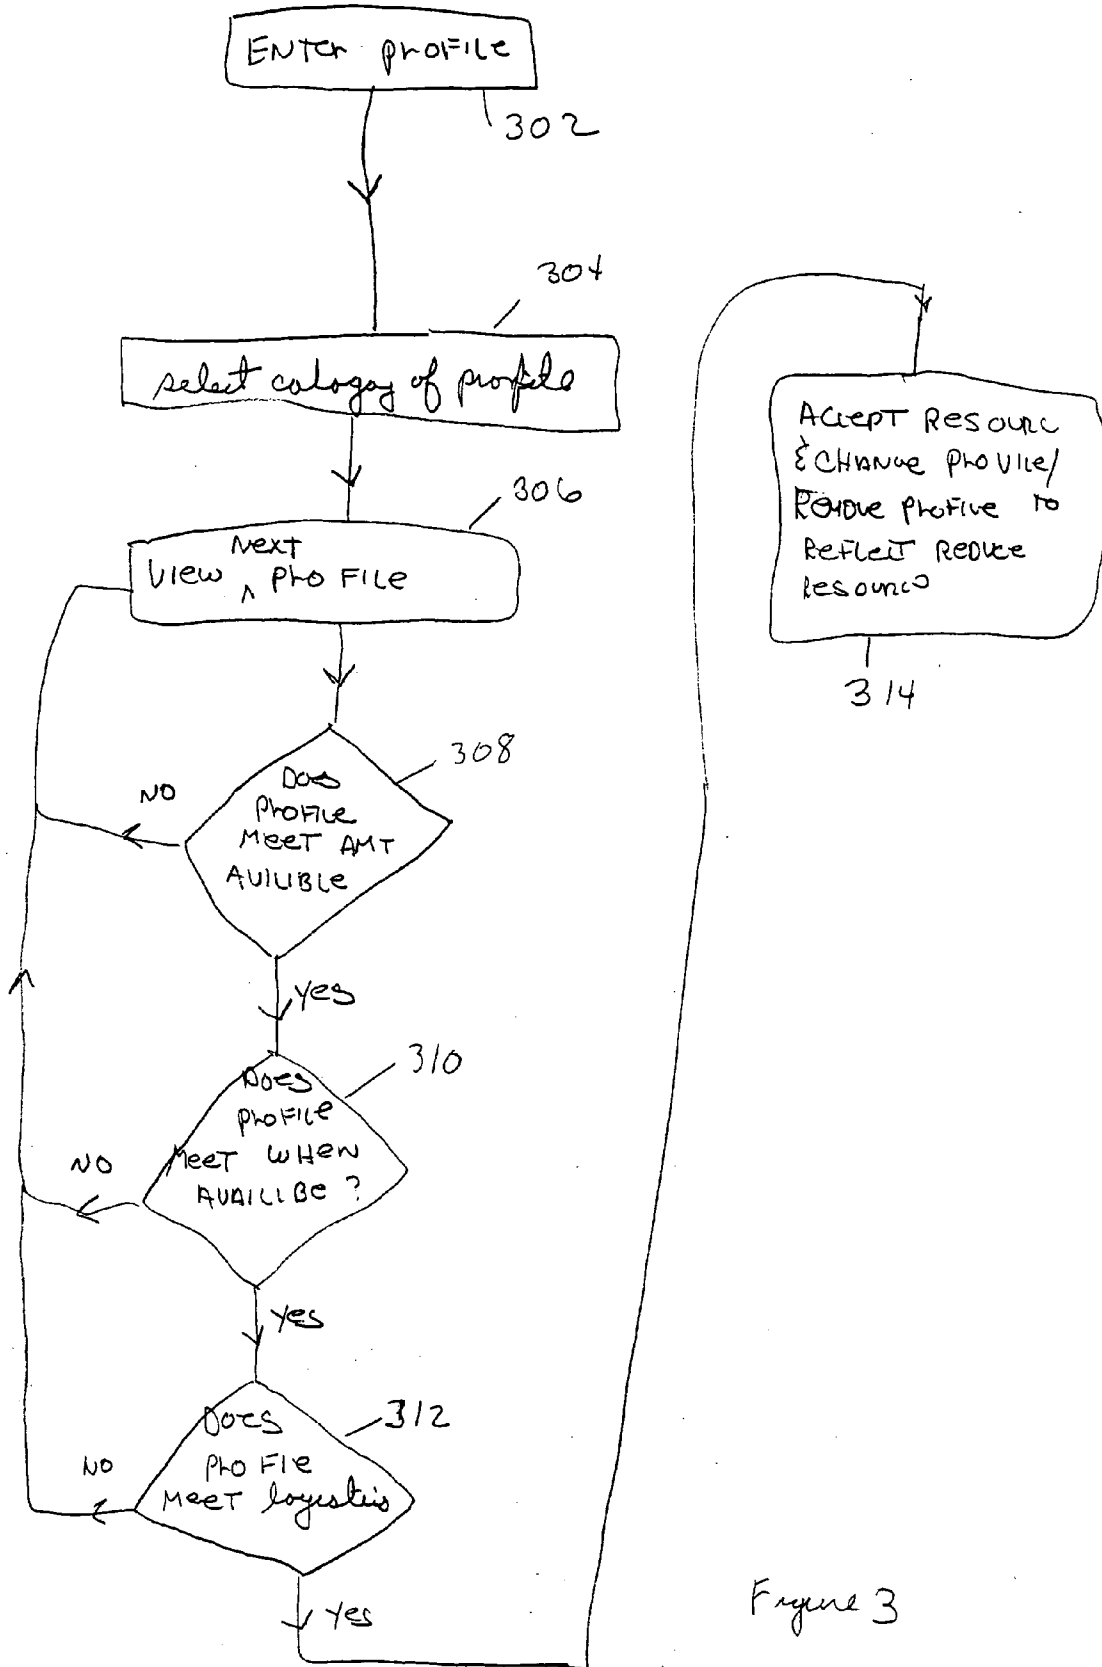 ENTER PROFILE
302
304
select catagory of profile
306
NEXT
VIEW ^ PROFILE
308
DOES
PROFILE
MEET AMT
AVILIBLE
NO
YES
310
DOES
PROFILE
MEET WHEN
AVAILIBE ?
NO
YES
312
DOES
PROFIE
MEET logistics
NO
YES
ACCEPT RESOURC
& CHANGE PROVILE/
REMOVE PROFILE TO
REFLECT REDUCE
RESOURCS
314
Figure 3